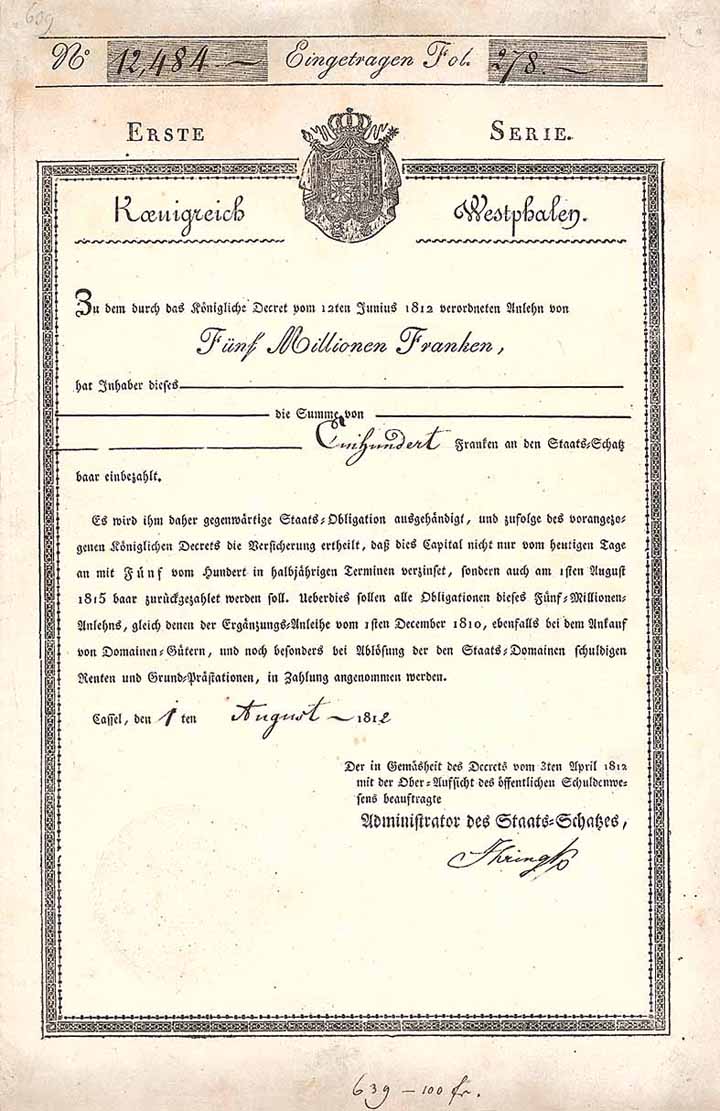 639
No 12,484 — Eingetragen Fol. 278. —
ERSTE SERIE.
Kœnigreich Westphalen.
Zu dem durch das Königliche Decret vom 12ten Junius 1812 verordneten Anlehn von
Fünf Millionen Franken,
hat Inhaber dieses
die Summe von
Einhundert Franken an den Staats-Schatz
baar einbezahlt.
Es wird ihm daher gegenwärtige Staats-Obligation ausgehändigt, und zufolge des vorangezo-
genen Königlichen Decrets die Versicherung ertheilt, daß dies Capital nicht nur vom heutigen Tage
an mit Fünf vom Hundert in halbjährigen Terminen verzinset, sondern auch am 1sten August
1815 baar zurückgezahlet werden soll. Ueberdies sollen alle Obligationen dieses Fünf-Millionen-
Anlehns, gleich denen der Ergänzungs-Anleihe vom 1sten December 1810, ebenfalls bei dem Ankauf
von Domainen-Gütern, und noch besonders bei Ablösung der den Staats-Domainen schuldigen
Renten und Grund-Prästationen, in Zahlung angenommen werden.
Cassel, den 1 ten August — 1812
Der in Gemäsheit des Decrets vom 3ten April 1812
mit der Ober-Aufsicht des öffentlichen Schuldenwe-
sens beauftragte
Administrator des Staats-Schatzes,
639 — 100 fr.